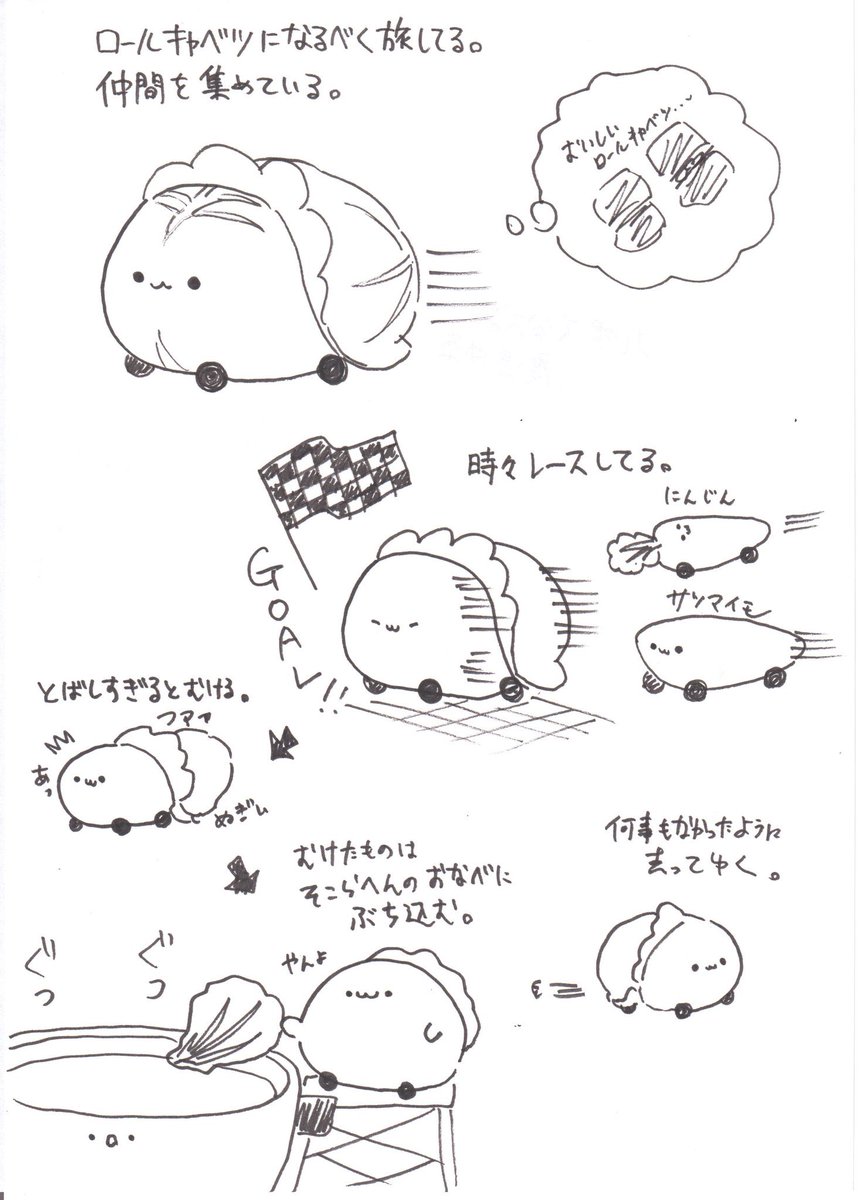 ロールキャベツになるべく旅してる。
仲間を集めている。
おいしい
ロールキャベツ...
時々レースしてる。
にんじん
GOAL!!
サツマイモ
とばしすぎるとむける。
ファァ
あっ
ぬぎぃ
むけたものは
そこらへんのおなべに
ぶち込む。
何事もなかったように
去ってゆく。
やんよ
ぐっ
ぐっ